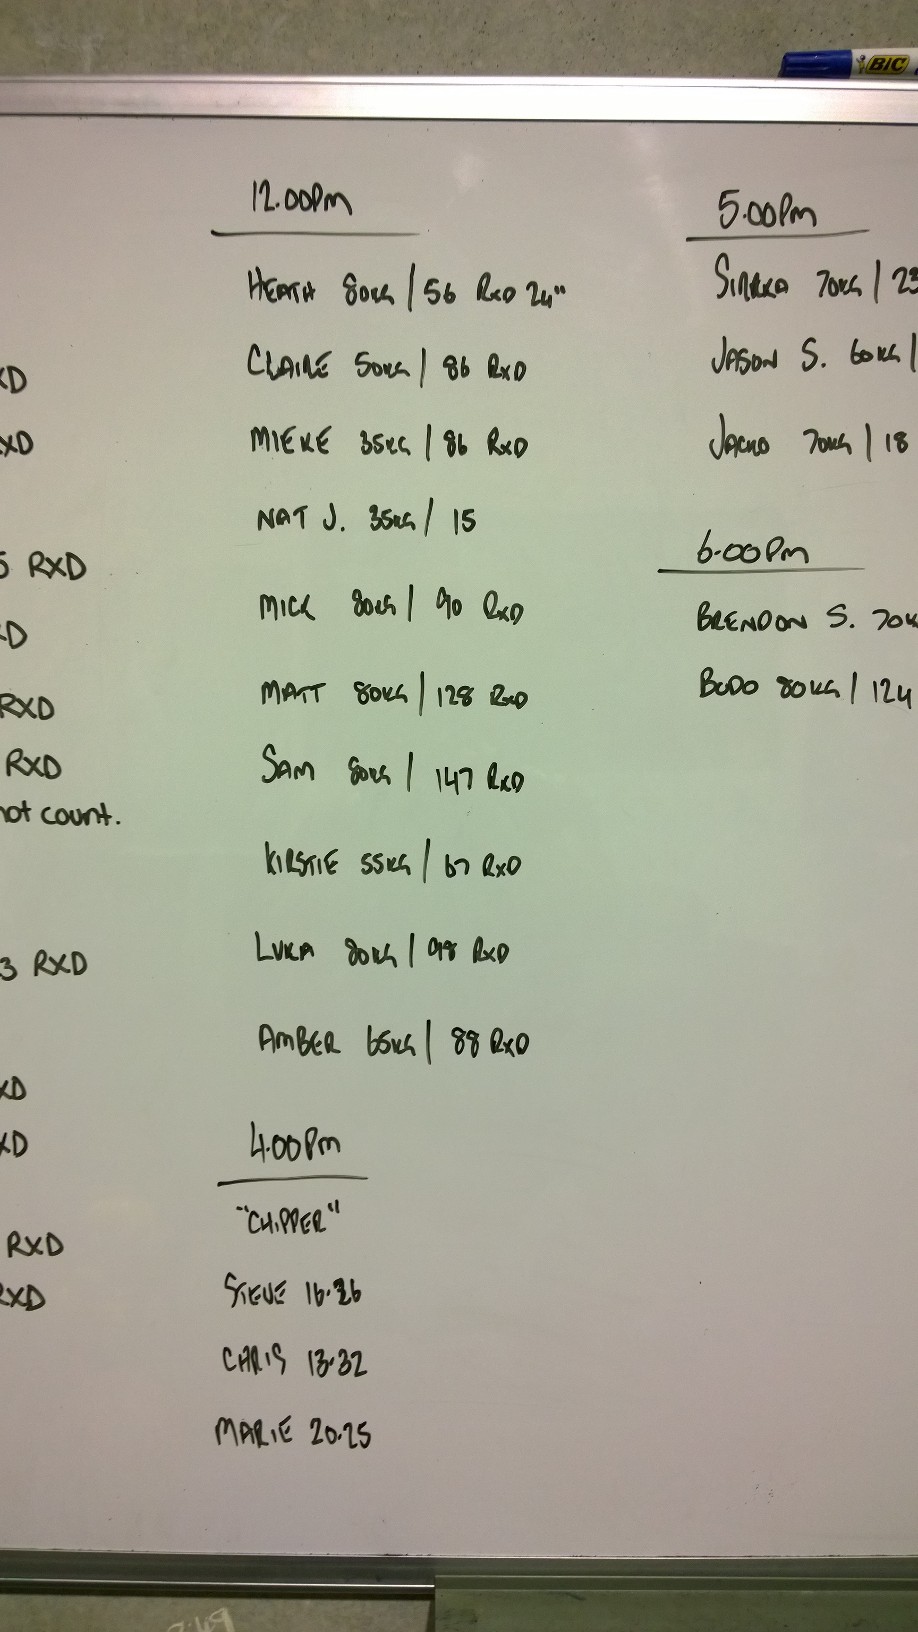 BIC
XD
XD
5 RXD
XD
RXD
RXD
not count.
3 RXD
XD
XD
RXD
RXD
12.00PM
HEATH 80KG / 56 RXD 24"
CLAIRE 50KG / 86 RXD
MIEKE 35KG / 86 RXD
NAT J. 35KG / 15
MICK 80KG / 90 RXD
MATT 80KG / 128 RXD
SAM 80KG / 147 RXD
KIRSTIE 55KG / 67 RXD
LUKA 80KG / 98 RXD
AMBER 65KG / 88 RXD
4.00PM
"CHIPPER"
STEVE 16.26
CHRIS 13.32
MARIE 20.25
5.00PM
70KG / 23
JASON S. 60KG /
70KG / 18
6.00PM
BRENDON S. 70K
BODO 80KG / 124